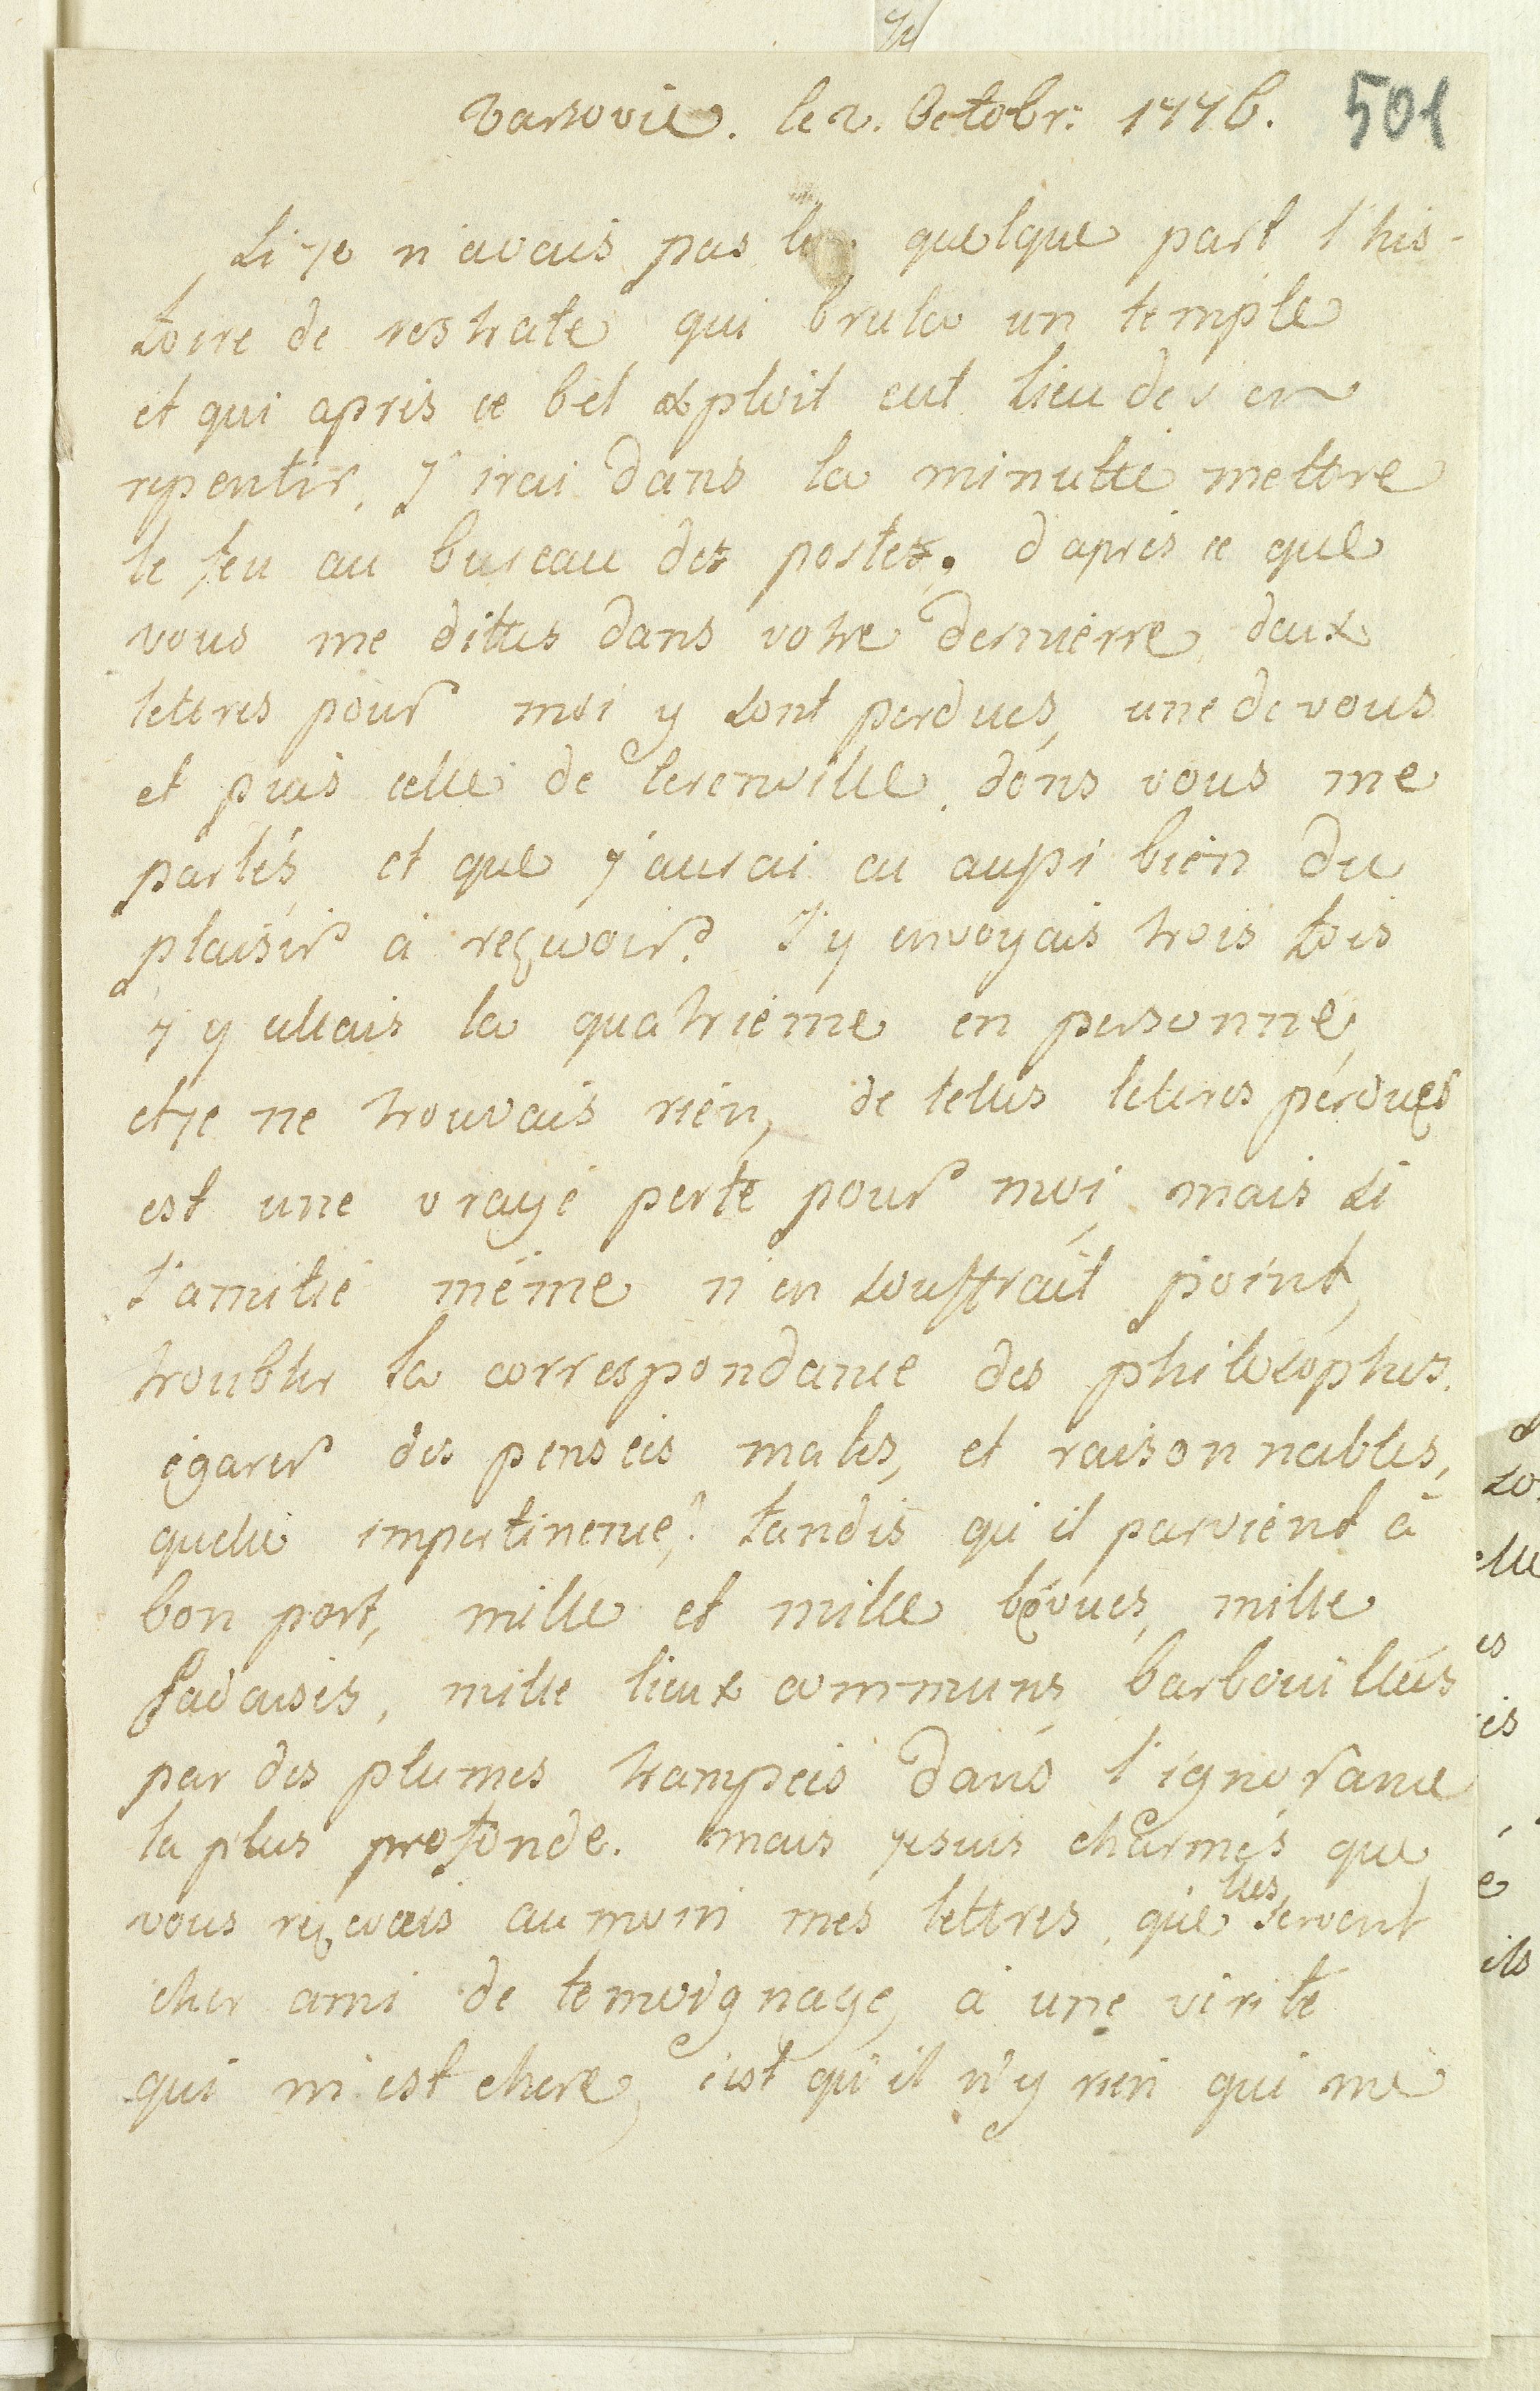 Varsovie. le 2. Octobr: 1776. 501
Si je n'avais pas lu quelque part l'his-
toire de restrate qui brula un temple
et qui apris ce bel exploit eut lieu de s en
repentir, j'irai dans la minutte mettre
le feu au bureau des postes. d'apres ce que
vous me dittes dans votre dernierre, deux
lettres pour moi y sont perdues, une de vous
et puis celle de dont vous me
parlés, et que j'aurai eu aussi bien du
plaisir à reçuvoir. J'y envoyais trois fois
j'y allais la quatriéme en personne,
et je ne trouvais rien, de telles lettres perdues
est une vraye perte pour moi, mais si
l'amitié méme n'en souffrait point,
troubler la correspondance des philosophes.
égarer des penseés males, et raisonnables,
quelle impertinence, tandis qu'il parvient à
bon port, mille et mille bévues, mille
fadaises, mille lieux communs barbouillées
par des plumes trampeés dans l'ignorance
la plus profonde. mais je suis charmés que
vous au moin mes lettres, que
lles servent
cher ami de temoignage, à une verité
qui m'est chere, c'est qu'il n'y rien qui me
d
so
elle
es
es
e
ils